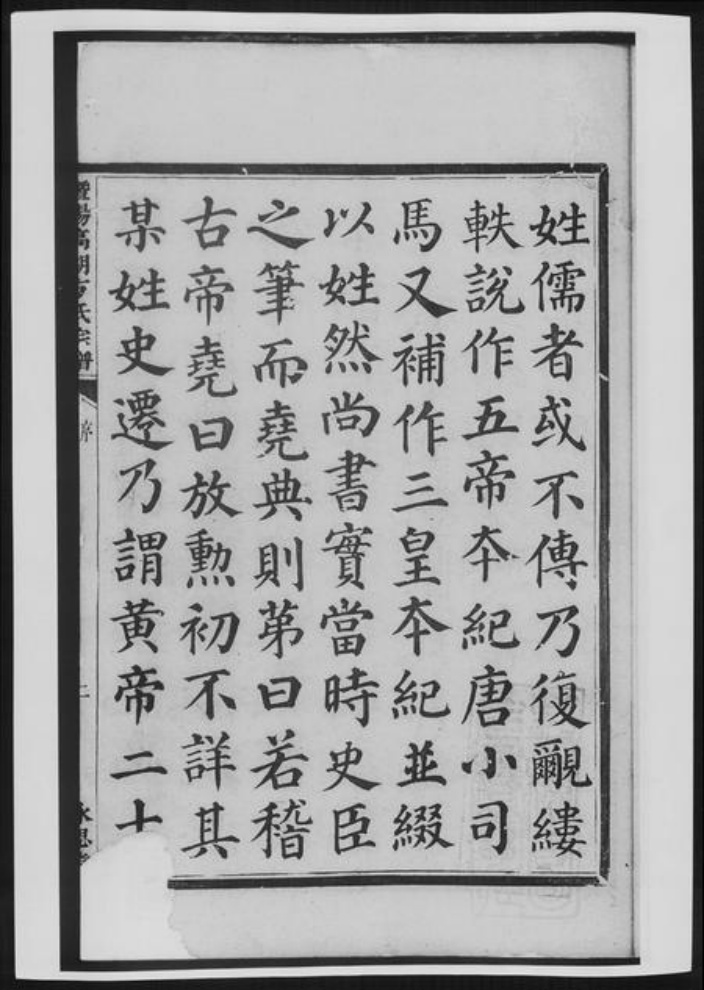 姓儒者或不傳乃復覼縷
軼說作五帝本紀唐小司
馬又補作三皇本紀並綴
以姓然尚書實當時史臣
之筆而堯典則第曰若稽
古帝堯曰放勲初不詳其
某姓史遷乃謂黄帝二十
暨陽高湖 氏宗譜
序
二
永思